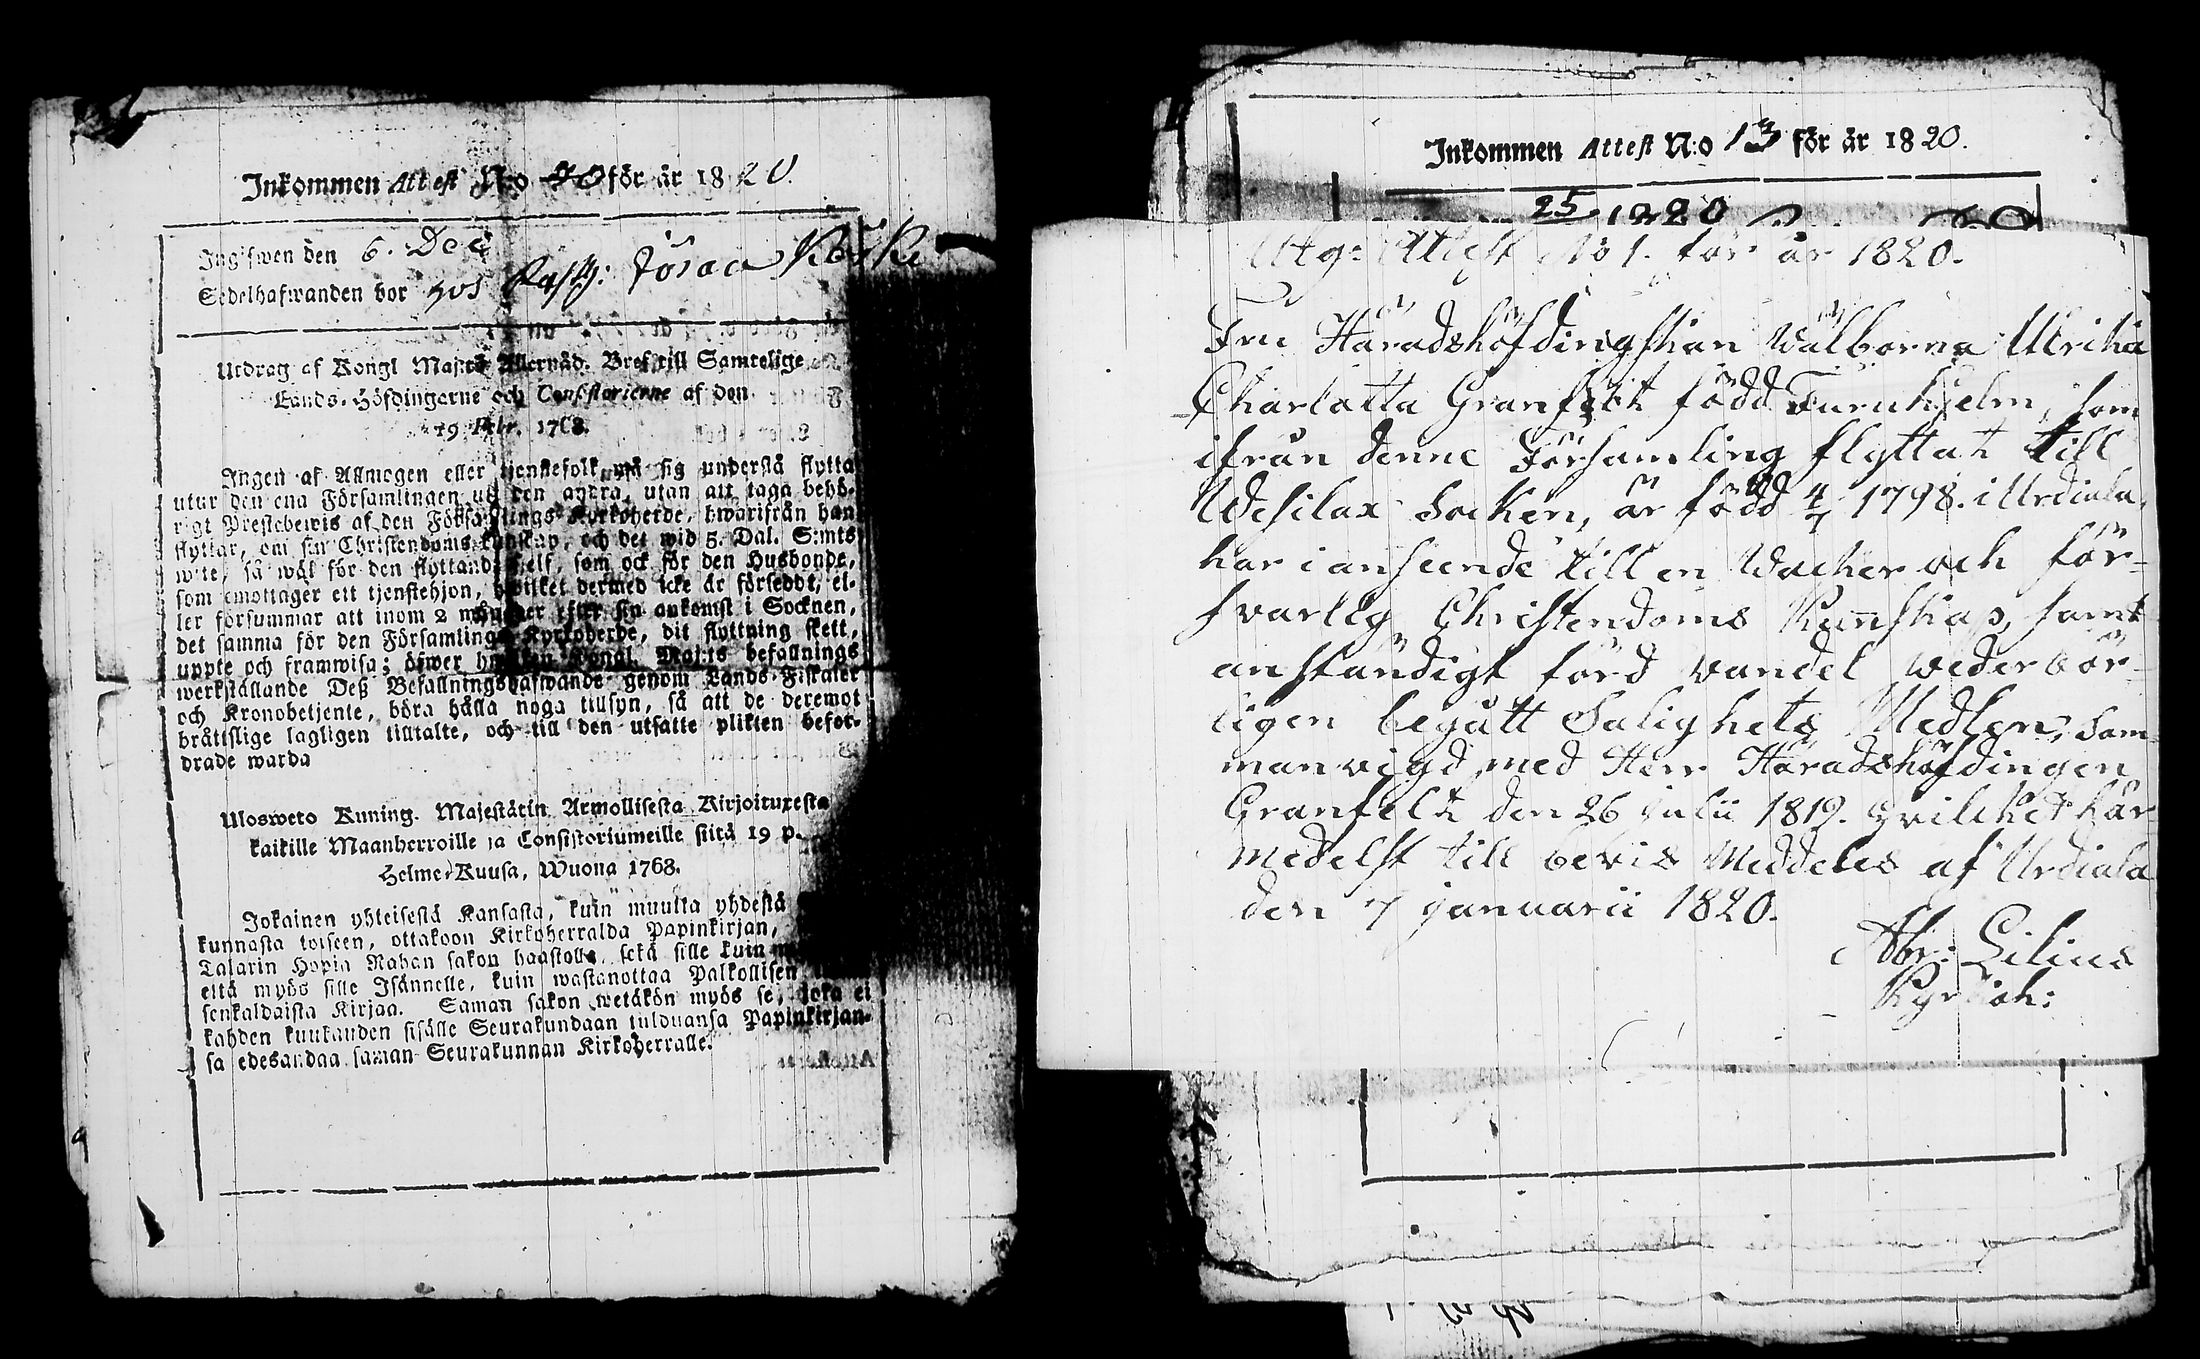 Inkommen Attest N:o 70 för år 1820.
Ingifwen den 6. Dec
Sedelhafwanden bor hos
Utdrag af Kongl Maj:ts Allernåd. Bref till Samtelige
Lands-Höfdingarne och Consistorierne af den
19 Febr. 1768.
Ingen af Allmogen eller tjenstefolk, må sig understå flytta
utur den ena Församlingen uti den andra, utan att taga behö-
rigt Prestebewis af den Församlings Kyrkoherde, hwarifrån han
flyttar, om sin Christendoms kunskap, och det wid 5. Dal. S:mts
wite, så wäl för den flyttande sjelf, som ock för den Husbonde,
som emottager ett tjenstehjon, hwilket dermed icke är försedt, el-
ler försummar att inom 2 månader efter sin ankomst i Socknen,
det samma för den Församlings Kyrkoherde, dit flyttning skett,
uppte och framwisa; öfwer hwilken Kongl. Maj:ts befallnings
werkställande Deß Befallningshafwande genom Lands-Fiskaler
och Kronobetjente, böra hålla noga tillsyn, så att de deremot
bråttslige lagligen tilltalte, och till den utsatte plikten befor-
drade warda
Ulosweto Kuning. Majestätin Armollisesta Kirjoituxesta
kaikille Maanherroille ja Consistoriumeille siitä 19 p.
Helme-Kuusa, Wuona 1768.
Jokainen yhteisestä Kansasta, kuin muutta yhdestä
kunnasta toiseen, ottakoon Kirkoherralda Papinkirjan,
Talarin Hopia Rahan sakon haastolla, sekä sille kuin
että myös sille Isännelle, kuin wastanottaa Palkollisen
senkaldaista Kirjaa. Saman sakon wetäkön myös se, joka ei
kahden kuukauden sisälle Seurakundaan tulduansa Papinkirjan-
sa edesandaa saman Seurakunnan Kirkoherralle.
Inkommen Attest N:o 13 för år 1820.
25 1820
Utg: Attest No 1. för år 1820.
Fru Häradshöfdingskan Wälborna Ulrika
Charlotta Granfelt född Furuhjelm, som
ifrån denne Församling flyttat till
Wesilax Socken, är född 4/7 1798. i Urdiala,
har i anseende till en Wacker och för-
svarlig Christendoms Kunskap, samt
anständigt förd vandel wederbör-
ligen begått Salighets Medlen, sam-
manvigd med Herr Häradshöfdingen
Granfelt den 26 Julii 1819. Hvilket här
medelst till bevis Meddeles af Urdiala
den 7 Januarii 1820.
Abr: Lilius
Kyrkioh: